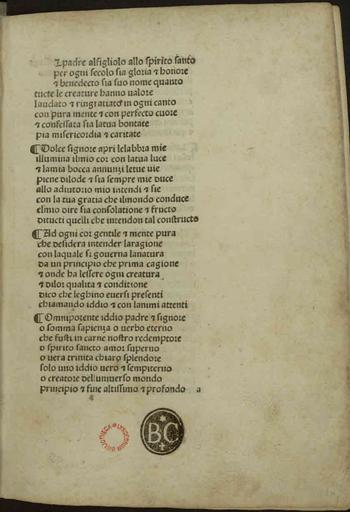 L padre al figliolo allo spirito santo
per ogni secolo sia gloria ⁊ honore
⁊ benedecto sia suo nome quanto
tucte le creature hanno ualore
laudato ⁊ ringratiato in ogni canto
con pura mente ⁊ con perfecto cuore
⁊ confessata sia latua bontate
pia misericordia ⁊ caritate
¶ Dolce signore apri lelabbia mie
illumina ilmio cor con latua luce
⁊ lamia bocca annunzi letue uie
piene dilode ⁊ sia sempre mie duce
allo adiutorio mio intendi ⁊ sie
con la tua gratia che ilmondo conduce
elmio dire sia consolatione ⁊ fructo
ditucti quelli che intendon tal constructo
¶ Ad ogni cor gentile ⁊ mente pura
che desidera intender laragione
con laquale si gouerna lanatura
da un principio che prima cagione
⁊ onde ha lessere ogni creatura
⁊ dilor qualita ⁊ conditione
dico che leghino euersi presenti
chiamando iddio ⁊ con lanimi attenti
¶ Omnipotente iddio padre ⁊ signore
o somma sapienza o uerbo eterno
che fusti in carne nostro redemptore
o spirito sancto amor superno
o uera trinita chiaro splendore
solo uno iddio uero ⁊ sempiterno
o creatore dell uniuerso mondo
principio ⁊ fine altissimo ⁊ profondo a
BC